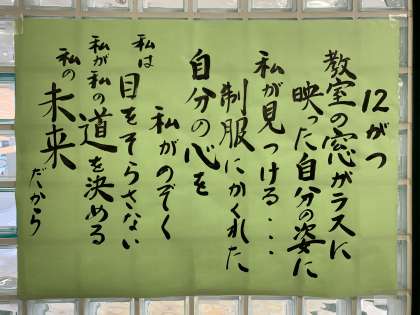 12がつ
教室の窓がラスに
映った自分の姿に
私が見つける・・・
制服にかくれた
自分の心を
私がのぞく
私は目をそらさない
私が私の道を決める
私の未来だから